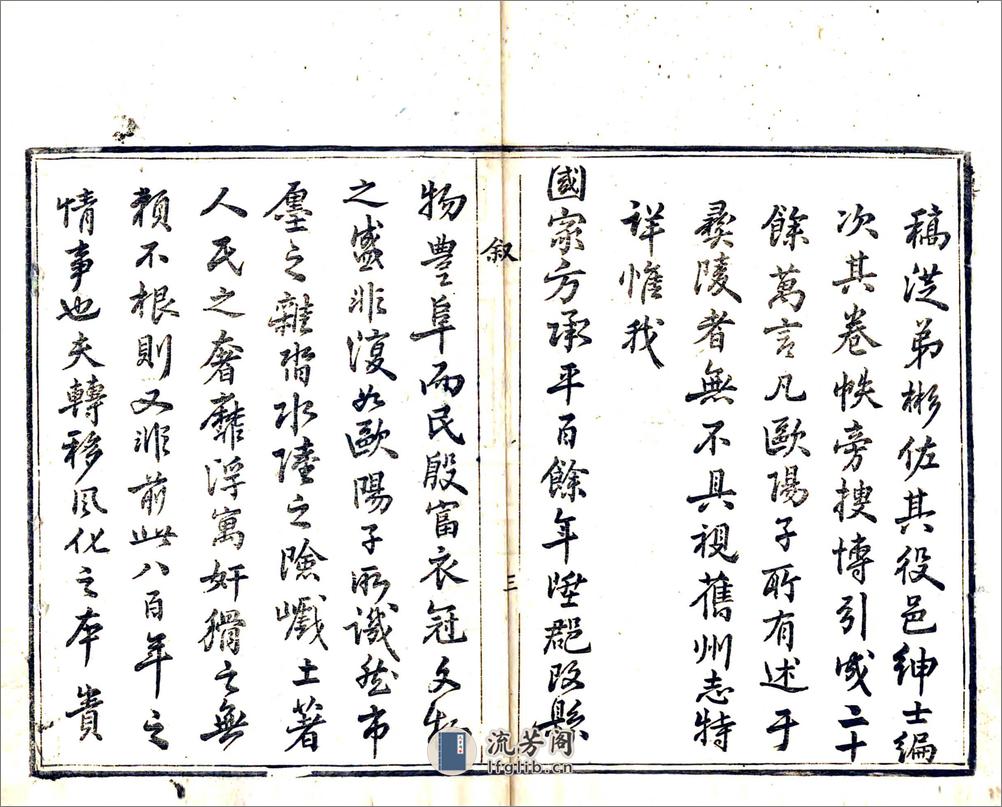 稿從弟彬佐其役邑紳士編
次其卷帙旁搜博引成二十
餘萬言凡歐陽子所有述于
彛陵者無不具視舊州志特
詳惟我
國家方承平百餘年陞郡改縣
叙
三
物豊阜而民殷富衣冠文物
之盛非復如歐陽子所譏然市
廛之雜沓水陸之險巇土著
人民之奢靡浮寓奸猾之無
頼不根則又非前此八百年之
情事也夫轉移風化之本貴
流芳阁
lfglib.cn